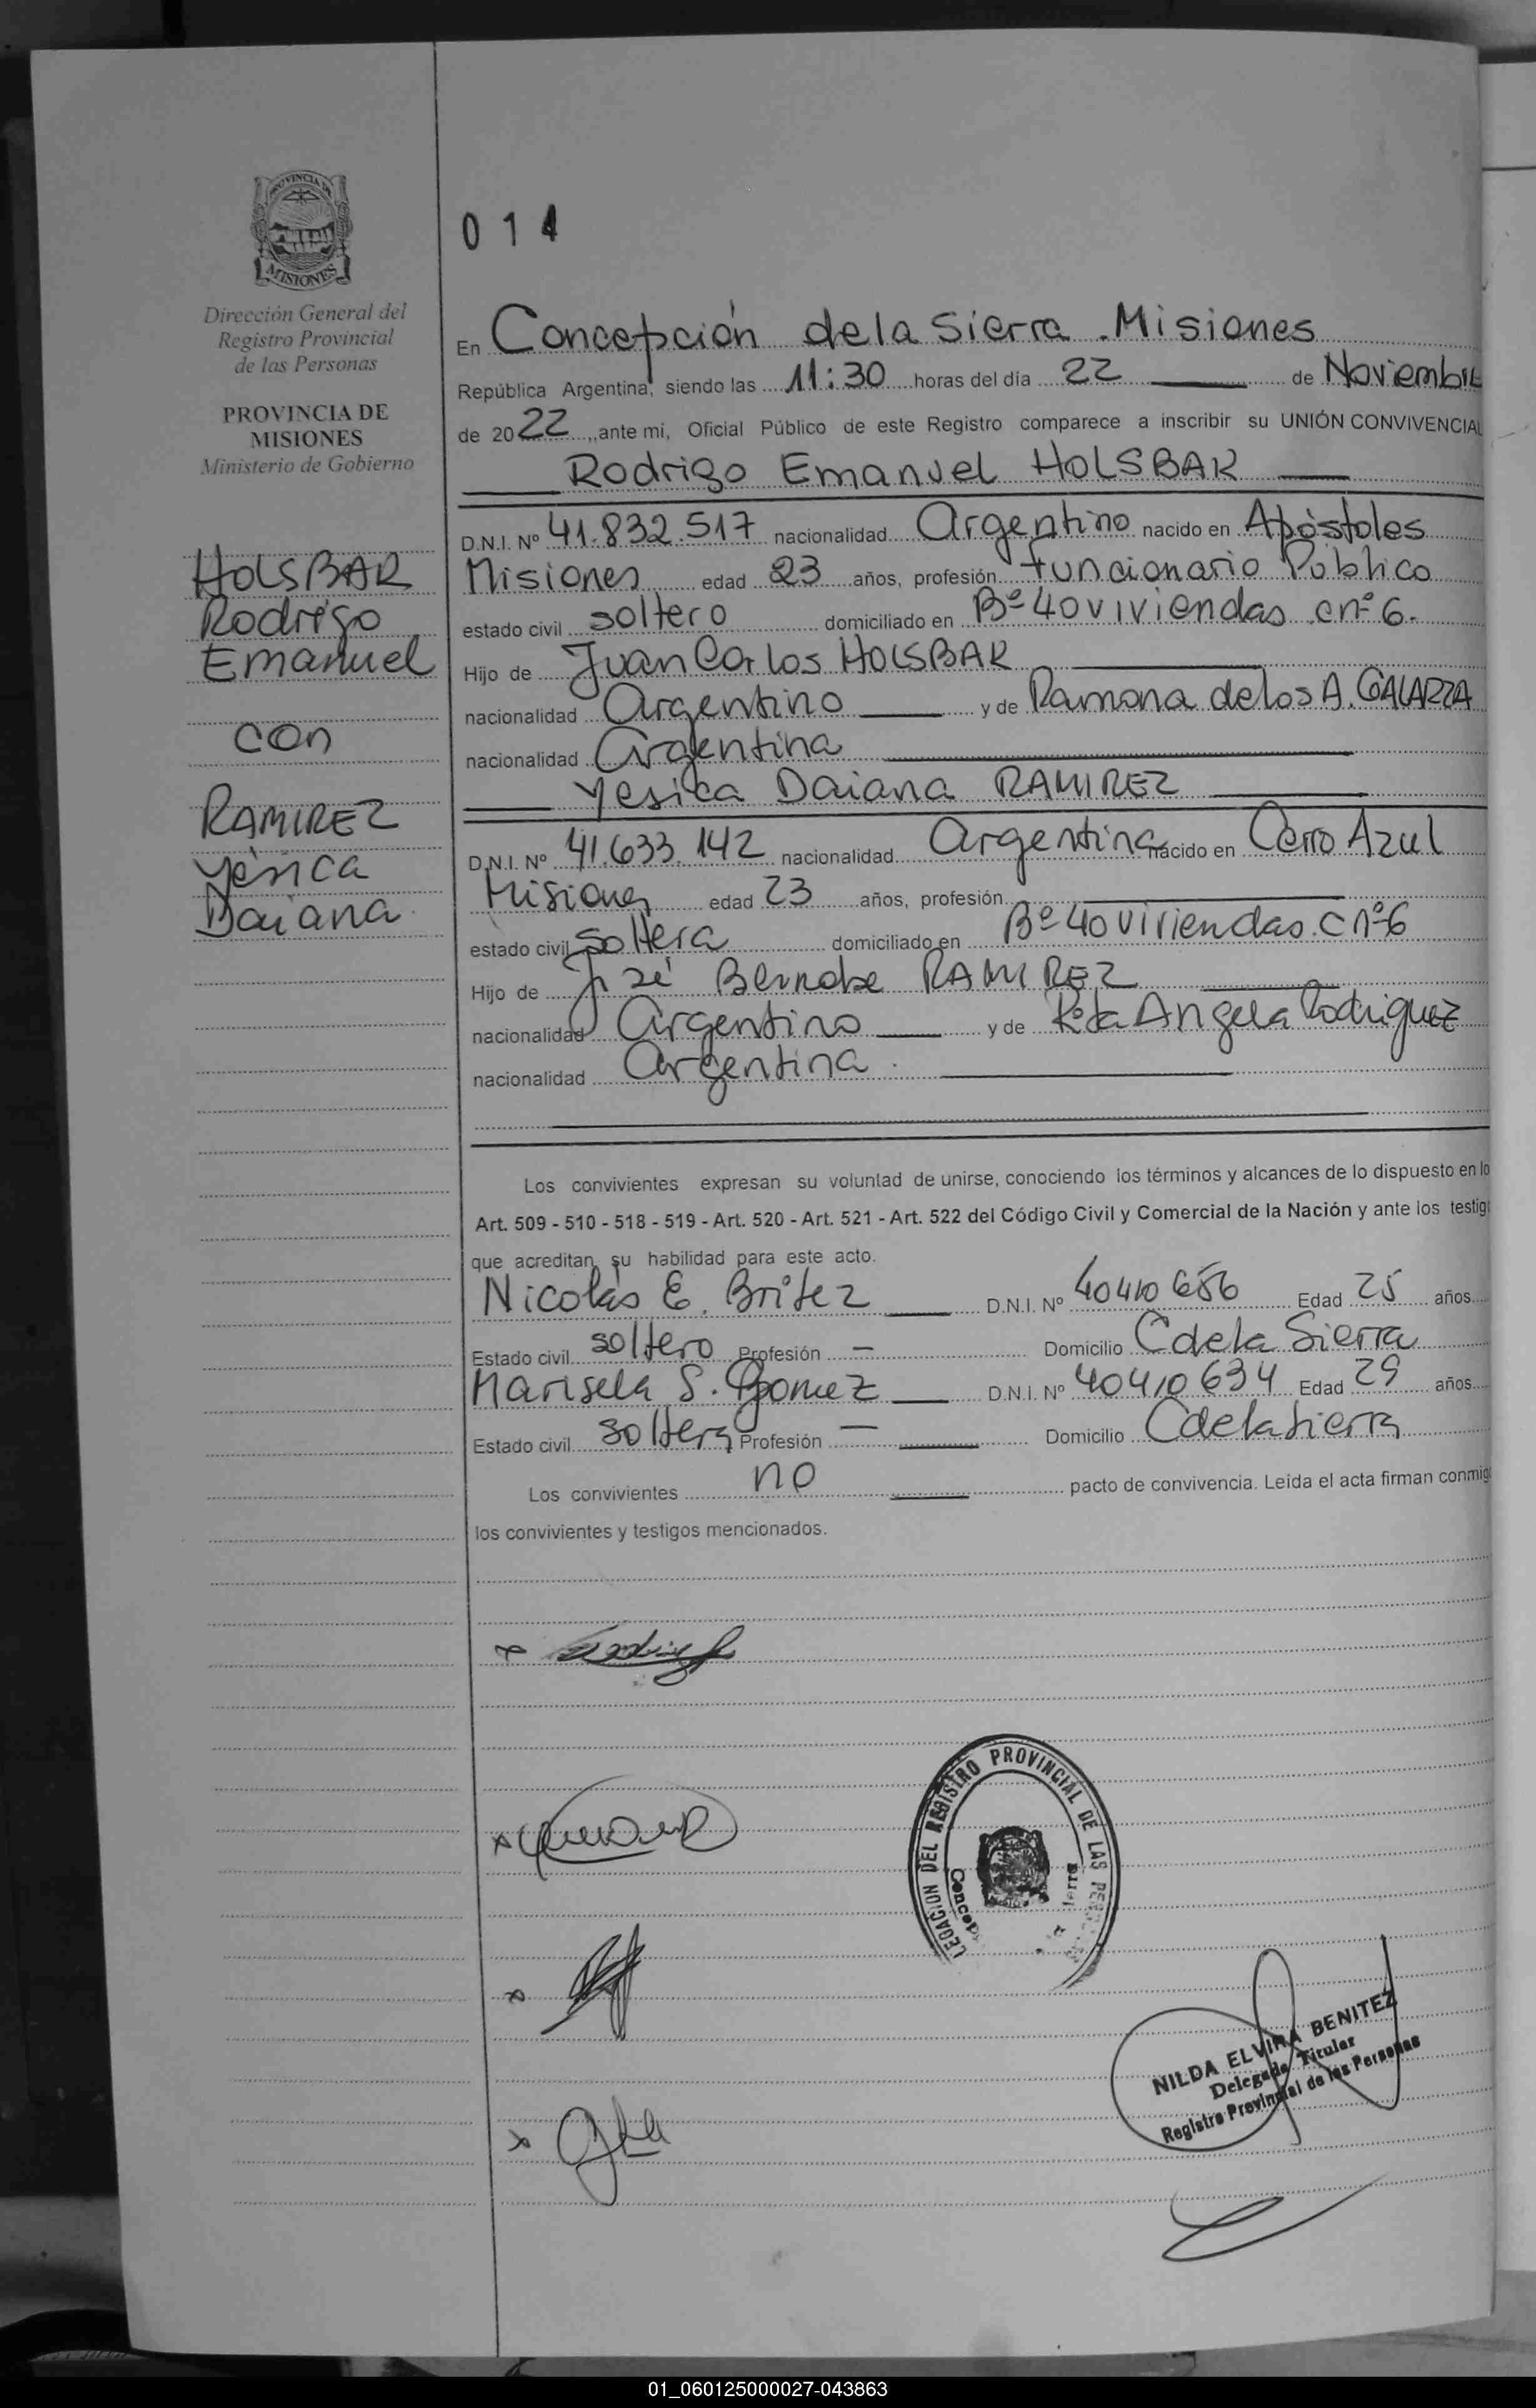 PROVINCIA DE
MISIONES
Dirección General del
Registro Provincial
de las Personas
PROVINCIA DE
MISIONES
Ministerio de Gobierno
HOLSBAR
Rodrigo
Emanuel
con
RAMIREZ
Yésica
Daiana
014
En Concepción de la Sierra . Misiones
República Argentina, siendo las 11:30 horas del día 22 de Noviembre
de 2022, ante mi, Oficial Público de este Registro comparece a inscribir su UNIÓN CONVIVENCIAL
Rodrigo Emanuel HOLSBAR
D.N.I. Nº 41.832.517 nacionalidad Argentino nacido en Apóstoles
Misiones edad 23 años, profesión Funcionario Público
estado civil soltero domiciliado en Bº 40 viviendas c nº 6.
Hijo de Juan Carlos HOLSBAR
nacionalidad Argentino y de Ramona de los A. GALARZA
nacionalidad Argentina
Yesica Daiana RAMIREZ
D.N.I. Nº 41.633.142 nacionalidad Argentina nacido en Cerro Azul
Misiones edad 23 años, profesión
estado civil soltera domiciliado en Bº 40 viviendas c nº 6
Hijo de José Bernabe RAMIREZ
nacionalidad Argentino y de Rita Angela Rodriguez
nacionalidad Argentina.
Los convivientes expresan su voluntad de unirse, conociendo los términos y alcances de lo dispuesto en lo
Art. 509 - 510 - 518 - 519 - Art. 520 - Art. 521 - Art. 522 del Código Civil y Comercial de la Nación y ante los testig
que acreditan su habilidad para este acto.
Nicolás E. Britez D.N.I. Nº 40410656 Edad 25 años
Estado civil soltero Profesión — Domicilio C de la Sierra
Marisela S. Gomez D.N.I. Nº 40410634 Edad 29 años
Estado civil soltera Profesión — Domicilio C de la Sierra
Los convivientes no pacto de convivencia. Leida el acta firman conmig
los convivientes y testigos mencionados.
LEGACION DEL REGISTRO PROVINCIAL DE LAS PERS
Concep ierra
NILDA ELVIRA BENITEZ
Delegada Titular
Registro Provincial de las Personas
01_060125000027-043863